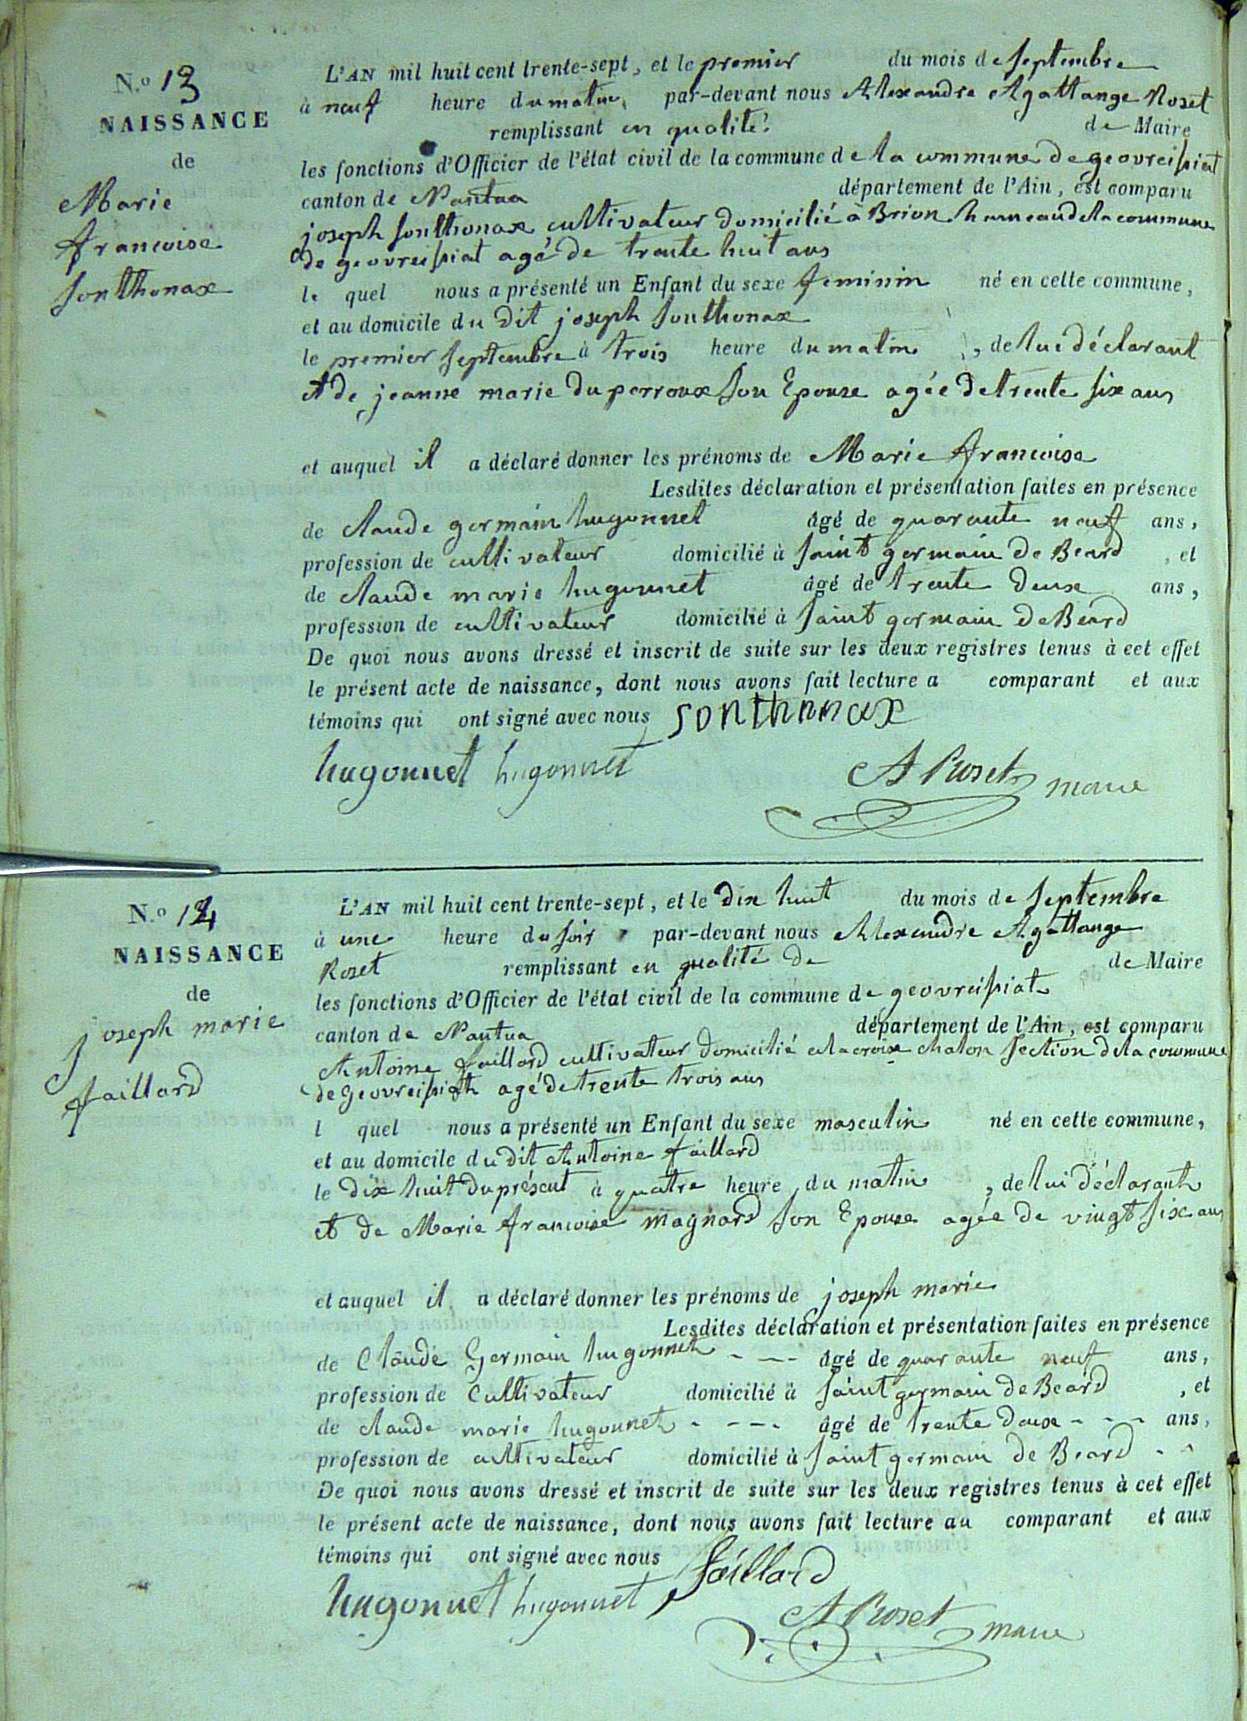 N.º 13
NAISSANCE
de
Marie
francoise
Sonthonax
L'AN mil huit cent trente-sept, et le premier du mois de septembre
à neuf heure du matin, par-devant nous Alexandre Agattange Roset
remplissant en qualité de Maire
les fonctions d'Officier de l'état civil de la commune de la commune de geovreissiat
canton de Nantua département de l'Ain, est comparu
joseph sonthonax cultivateur domicilié à Brion hameau de la commune
de geovreissiat agé de trente huit ans
le quel nous a présenté un Enfant du sexe feminin né en cette commune,
et au domicile du dit joseph sonthonax
le premier septembre à trois heure du matin, de lui déclarant
et de jeanne marie duperroux son Epouse agée de trente six ans
et auquel il a déclaré donner les prénoms de Marie francoise
Lesdites déclaration et présentation faites en présence
de claude germain hugonnet âgé de quarante neuf ans,
profession de cultivateur domicilié à saint germain de Beard, et
de claude marie hugonnet âgé de trente deux ans,
profession de cultivateur domicilié à saint germain de Béard
De quoi nous avons dressé et inscrit de suite sur les deux registres tenus à cet effet
le présent acte de naissance, dont nous avons fait lecture a comparant et aux
témoins qui ont signé avec nous sonthonax
hugonnet hugonnet A Roset maire
N.º 14
NAISSANCE
de
joseph marie
faillard
L'AN mil huit cent trente-sept, et le dix huit du mois de septembre
à une heure du soir par-devant nous Alexandre Agattange
Roset remplissant en qualité de de Maire
les fonctions d'Officier de l'état civil de la commune de geovreissiat
canton de Nantua département de l'Ain, est comparu
Antoine faillard cultivateur domicilié a lacroix chalon section de la commune
de Geovreissiat agé de trente trois ans
l quel nous a présenté un Enfant du sexe masculin né en cette commune,
et au domicile du dit Antoine faillard
le dix huit du présent à quatre heure du matin, de lui déclarant
et de Marie francoise magnard son Epouse agée de vingt six ans
et auquel il a déclaré donner les prénoms de joseph marie
Lesdites déclaration et présentation faites en présence
de Claude Germain hugonnet - - - âgé de quarante neuf ans,
profession de Cultivateur domicilié à saint germain de Beard, et
de claude marie hugonnet - - - - âgé de trente deux - - - ans,
profession de cultivateur domicilié à saint germain de Beard - -
De quoi nous avons dressé et inscrit de suite sur les deux registres tenus à cet effet
le présent acte de naissance, dont nous avons fait lecture au comparant et aux
témoins qui ont signé avec nous faillard
hugonnet hugonnet A Roset maire